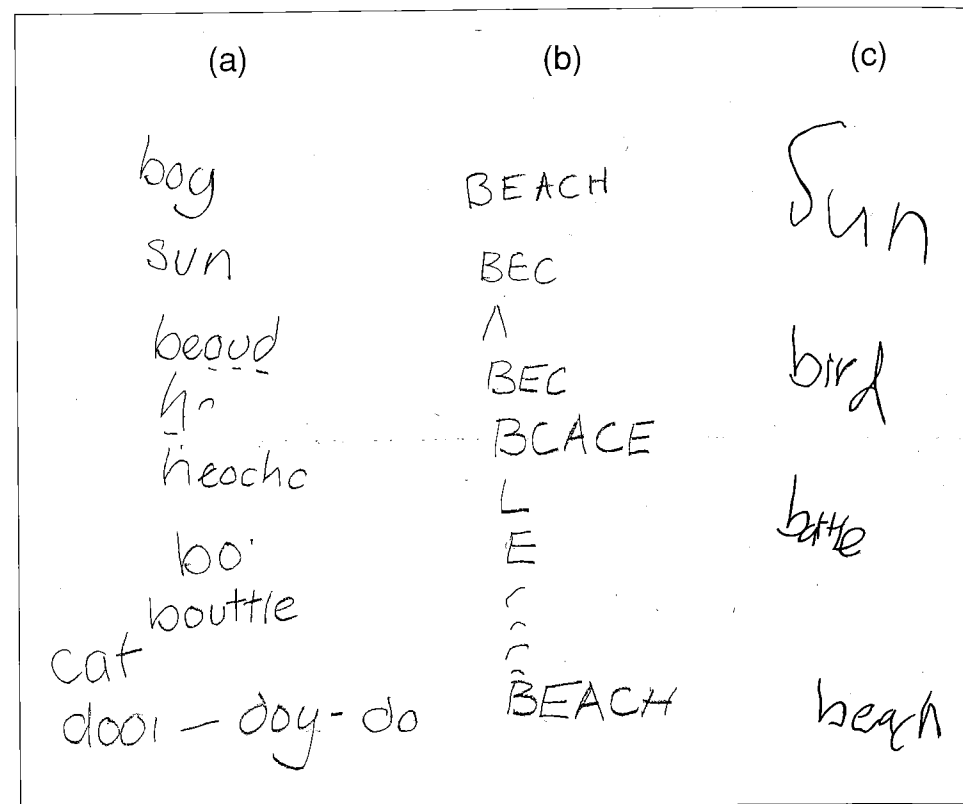 (a)
bog
sun
beaud
hr
heocho
bo
bouttle
cat
dooi — doy - do
(b)
BEACH
BEC
Λ
BEC
BCACE
L
E
BEACH
(c)
Sun
bird
beach